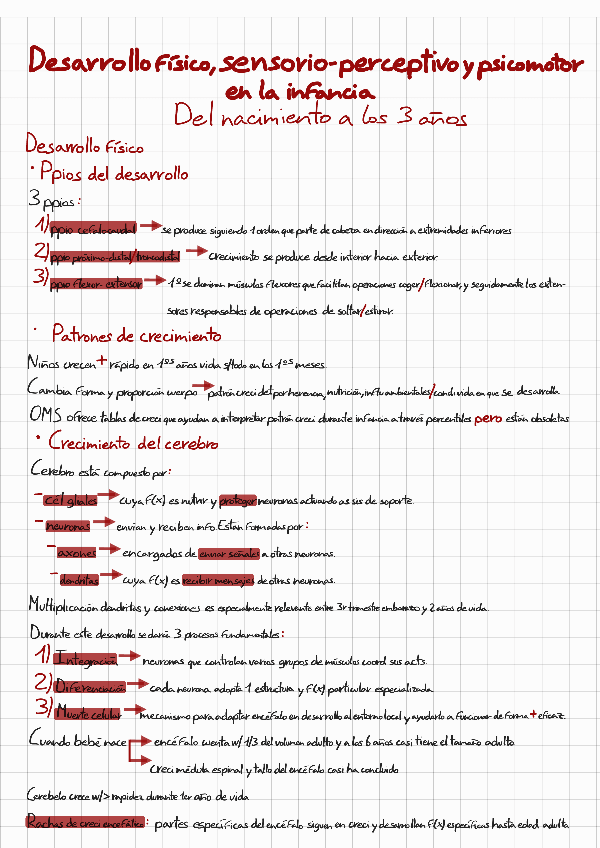 Desarrollo físico, sensorio-perceptivo y psicomotor
en la infancia
Del nacimiento a los 3 años
Desarrollo físico
· Ppios del desarrollo
3 ppios:
1) ppio cefalocaudal → se produce siguiendo 1 orden que parte de cabeza en dirección a extremidades inferiores
2) ppio próximo-distal/troncodistal → crecimiento se produce desde interior hacia exterior
3) ppio flexor-extensor → 1º se dominan músculos flexores que facilitan operaciones coger/flexionar, y seguidamente los exten-
sores responsables de operaciones de soltar/estirar.
· Patrones de crecimiento
Niños crecen + rápido en 1ºs años vida s/todo en los 1ºs meses.
Cambia forma y proporción cuerpo → patrón creci det por herencia, nutrición, influ ambientales/cond vida en que se desarrolla
OMS ofrece tablas de creci que ayudan a interpretar patrón creci durante infancia a través percentiles pero están obsoletas
· Crecimiento del cerebro
Cerebro está compuesto por:
- cel gliales → cuya f(x) es nutrir y proteger neuronas actuando as sis de soporte.
- neuronas → envían y reciben info. Están formadas por:
- axones → encargados de enviar señales a otras neuronas.
- dendritas → cuya f(x) es recibir mensajes de otras neuronas.
Multiplicación dendritas y conexiones es especialmente relevante entre 3r trimestre embarazo y 2 años de vida.
Durante este desarrollo se darán 3 procesos fundamentales:
1) Integración → neuronas que controlan varios grupos de músculos coord sus acts.
2) Diferenciación → cada neurona adopta 1 estructura y f(x) particular especializada
3) Muerte celular → mecanismo para adaptar encéfalo en desarrollo al entorno local y ayudarlo a funcionar de forma + eficaz.
Cuando bebé nace → encéfalo cuenta w/ 1/3 del volumen adulto y a los 6 años casi tiene el tamaño adulto
→ creci médula espinal y tallo del encéfalo casi ha concluido
Cerebelo crece w/ > rapidez durante 1er año de vida
Rachas de creci encefálico: partes específicas del encéfalo siguen en creci y desarrollan f(x) específicas hasta edad adulta